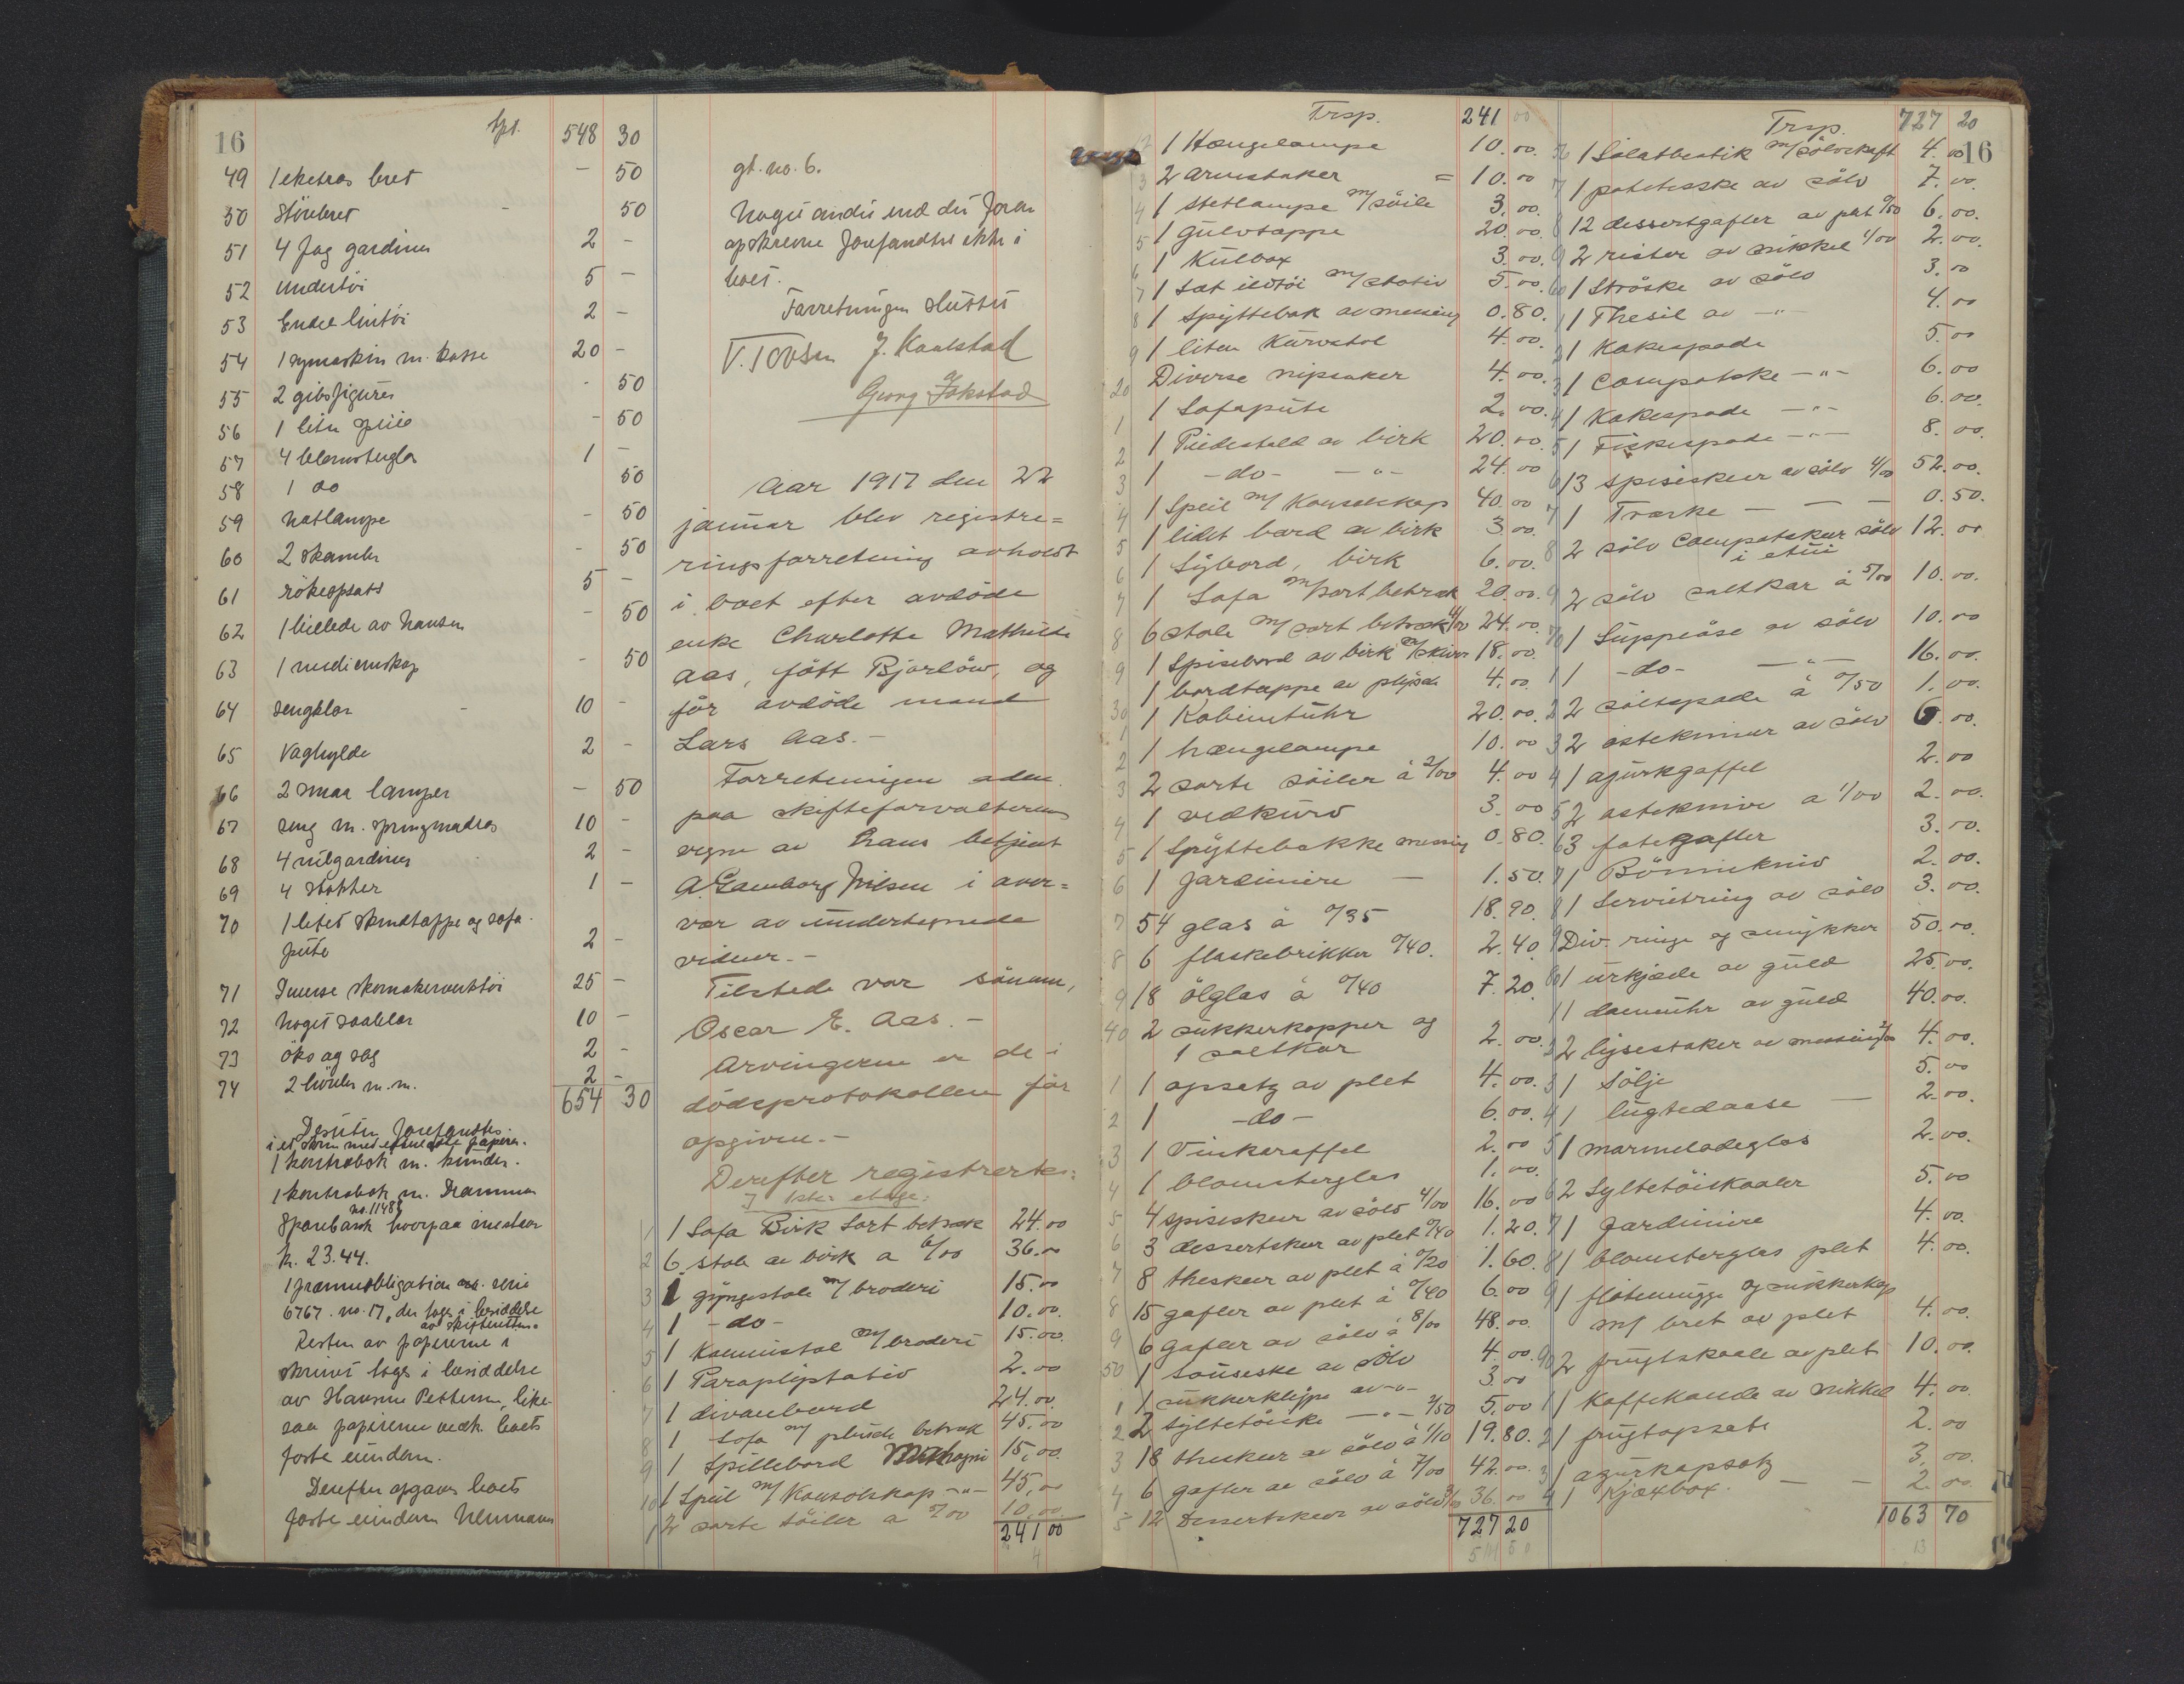 16
Tpt. 548 30
49 1 ekstra bret - 50
50 Strøbret - 50
51 4 fag gardiner 2 -
52 undertöi 5 -
53 Endel lintöi 2 -
54 1 symaskin m. kasse 20 -
55 2 gibsfigurer - 50
56 1 liten - 50
57 4 blomsterglas 1 -
58 1 do 50
59 Natlampe - 50
60 2 skamler - 50
61 rökeopsats 5 -
62 1 billede av Nansen - 50
63 1 medicinskap - 50
64 sengklær 10 -
65 Vaghylde 2 -
66 2 smaa lamper - 50
67 seng m. springmadras 10 -
68 4 rulgardiner 2 -
69 4 1 -
70 1 litet skindtæppe og sofa-
pute 2 -
71 Diverse skomakerverktöi 25 -
72 noget saalelær 10 -
73 öks og sag 2 -
74 2 m. m. 2 -
654 30
Desuten forefandtes
i et skrin med papirer.
1 kontrabok m.
1 kontrabok m. Drammens
no. 11489
Sparebank hvorpaa indestaar
kr. 23.44.
1 præmieobligation serie
6767. no. 17, der toges i besiddelse
av skifteretten.
Resten av papirerne i
skrinet toges i besiddelse
av Pettersen, like-
saa papirerne vedk. boets
faste eiendom.
Derefter opgaves boets
faste eiendom
gt. no. 6.
Noget andet end det foran
opskrevne forefandtes ikke i
boet.
Forretningen sluttet
V. Tovsen J. Kaalstad
Georg Jokstad
Aar 1917 den 22
januar blev registre=
ringsforretning avholdt
i boet efter avdöde
enke Charlotte Mathilde
Aas, fött Bjorlöw, og
för avdöde mand
Lars Aas. -
Forretningen adm.
paa skifteforvalterens
vegne av hans betjent
A. Gamborg Nilsen i over=
vær av undertegnede
vidner. -
Tilstede var sönnen,
Oscar E. Aas. -
Arvingerne er de i
dödsprotokollen för
opgivne. -
Derefter registrertes:
I 1ste etage:
1 1 Sofa Birk Sort betræk 24.00
2 6 stole av birk a 6/00 36.00
3 1 gyngestole m/ broderi 15.00
4 1 -do- 10.00.
5 1 Kaminstol m/ broderi 15.00.
6 1 Paraplystativ 2.00
7 1 divanbord 24.00.
8 1 Sofa m/ plüsch betræk 45.00
9 1 Spillebord Mahogni 15,00.
10 1 Speil m/ Konsolskap -"- 45,00
1 2 sorte söiler a 5/00 10.00.
241 00
Trsp. 241 00
12 1 Hængelampe 10.00.
3 2 armstaker = 10.00
4 1 stetlampe m/ söile 3.00.
5 1 gulvtæppe 20.00.
6 1 Kulbox 3.00.
7 1 Sæt ildtöi m/ stativ 5.00.
8 1 Spyttebak av messing 0.80.
9 1 liten Kurvstol 4.00.
20 Diverse nipsaker 4.00.
1 1 Sofapute 2.00.
2 1 Piedestald av birk 20.00.
3 1 -do- -"- 24.00
4 1 Speil m/ Konsolskap 40.00
5 1 lidet bord av birk 3.00.
6 1 Sybord, birk 6.00.
7 1 Sofa m/ sort betræk 20.00.
8 6 stole m/ sort betræk 4/00 24.00.
9 1 Spisebord av birk m/ skiver 18.00.
1 bordtæppe av plysch 4.00.
30 1 Kabinetuhr 20.00.
1
2 1 hængelampe 10.00
3 2 sorte söiler á 2/00 4.00
4 1 vedkurv 3.00
5 1 Spyttebakke messing 0.80.
6 1 Jardiniere - 1.50.
7 54 glas à 0/35 18.90.
8 6 flaskebrikker 0/40. 2.40.
9 18 ölglas à 0/40 7.20.
40 2 sukkerkopper og
1 saltkar 2.00.
1 1 opsatz av plet 4.00.
2 1 -do- 6.00.
3 1 Vinkaraffel 2.00
4 1 blomsterglas 1.00.
5 4 spiseskeer av sölv 4/00 16.00
6 3 dessertskeer av plet 0/40 1.20.
7 8 theskeer av plet á 0/20 1.60.
8 15 gafler av plet á 0/40 6.00
9 6 gafler av sölv á 8/00 48.00.
50 1 Sauseske av sölv 4.00.
1 1 sukkerklype av -"- 3.00
2 2 Syltetöiske -"- 2/50 5.00
3 18 theskeer av sölv á 1/10 19.80.
4 6 gafler av sölv á 7/00 42.00.
5 12 Dessertskeer av sölv 3/00 36.00
727 20
Trsp. 727 20
16
56 1 Salatbestik m/ sölvskaft 4.00
7 1 potetesske av sölv 7.00.
8 12 dessertgafler av plet 0/50 6.00.
9 2 rister av nikkel 1/00 2.00.
60 1 Ströske av sölv 3.00
1 1 Thesil av -"- 4.00
2 1 Kakespade 5.00
3 1 Compotske -"- 6.00
4 1 Kakespade -"- 6.00.
5 1 Fiskespade -"- 8.00.
6 13 spiseskeer av sölv 4/00 52.00.
7 1 Træske - - - 0.50.
8 2 sölv Compotskeer sölv 12.00
i etui
9 2 sölv saltkar á 5/00 10.00.
70 1 Suppeöse av sölv 10.00
1 1 -do- -"- 16.00.
2 2 saltspade á 0/50 1.00.
3 2 ostekniver av sölv 6.00.
4 1 agurkgaffel 2.00
5 2 ostekniver a 1/00 2.00.
6 3 fategafler 3.00.
7 1 Börnekniv 2.00.
8 1 Serviettring av sölv 3.00.
9 Div. ringe og smykker 50.00.
80 1 urkjæde av guld 25.00.
1 1 dameuhr av guld 40.00.
2 2 lysestaker av messing 2/00 4.00.
3 1 Sölje 5.00
4 1 lugtedaase - 2.00.
5 1 marmeladeglas 2.00.
6 2 Syltetöiskaaler 5.00
7 1 Jardiniere 4.00.
8 1 blomsterglas plet 4.00.
9 1 flötemugge og sukkerkop
m/ bret av plet 4.00.
90 2 frugtskaale av plet 10.00.
1 1 Kaffekande av nikkel 4.00.
2 1 frugtopsats 2.00
3 1 agurkopsatz 3.00.
4 1 Kjæxbox. - - 2.00.
1063 70